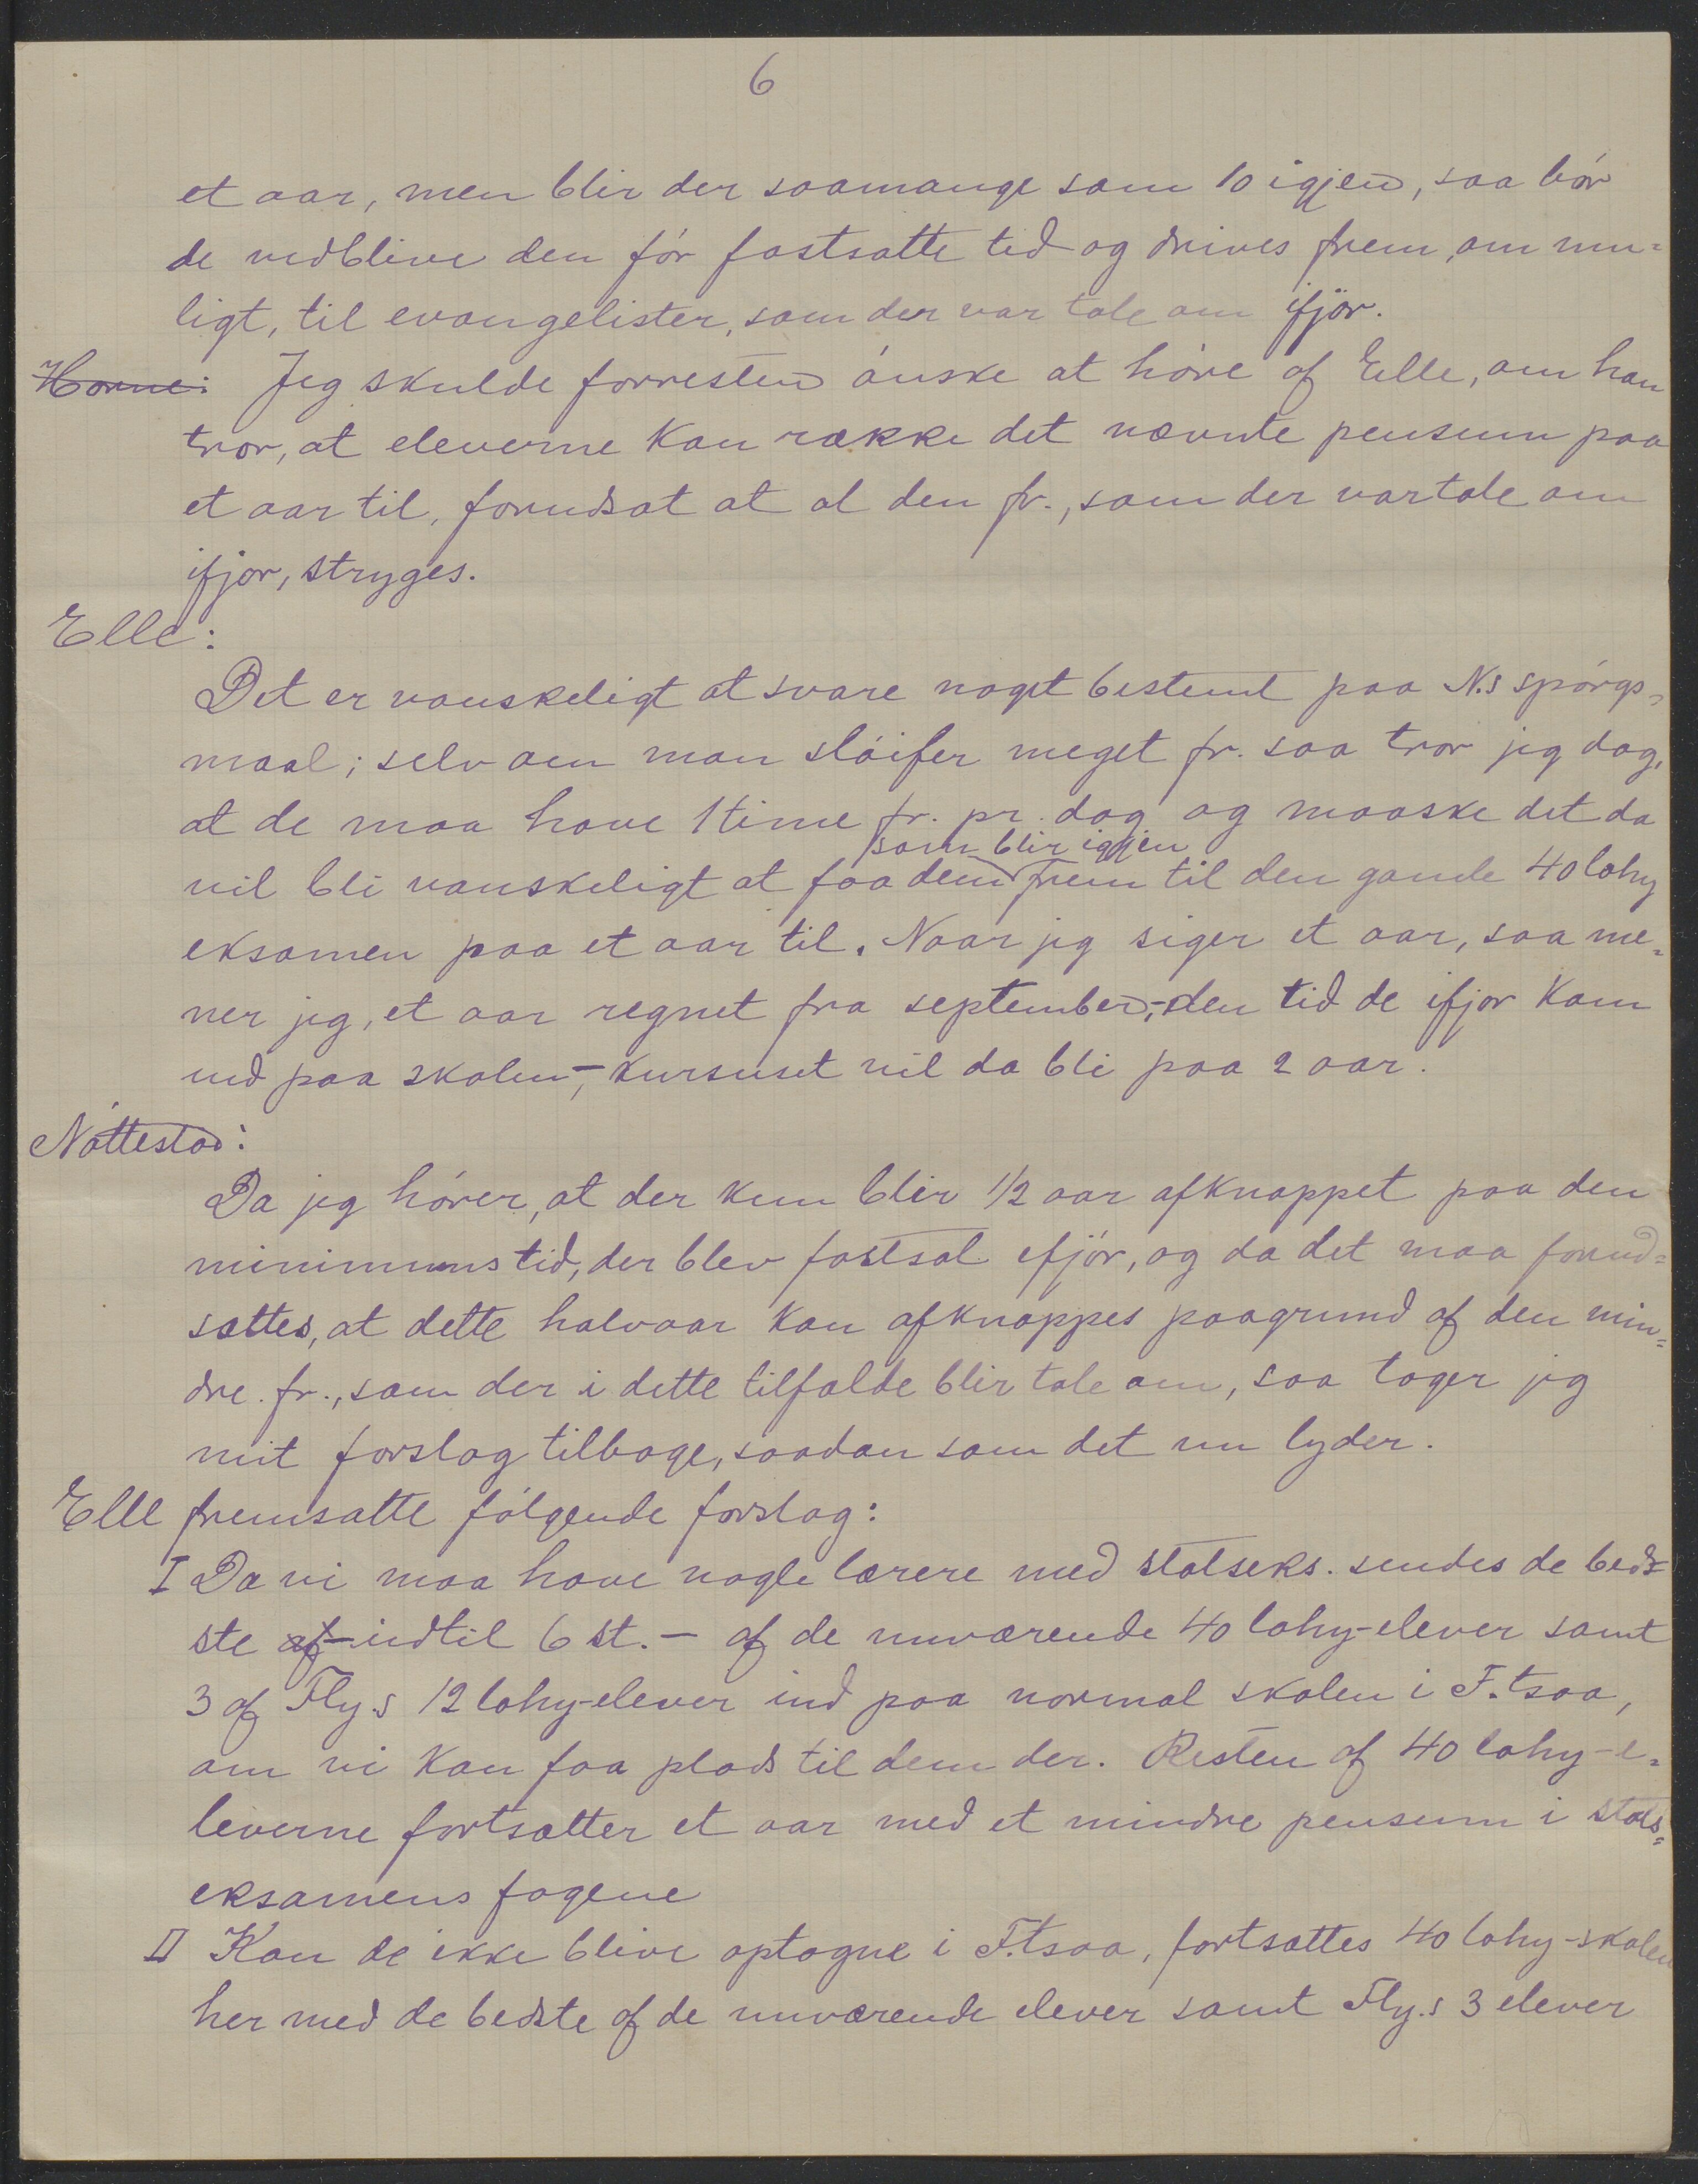 6
et aar, men blir der saamange som 10 igjen, saa bør
de vedblive den før fastsatte tid og drives frem, om mu=
ligt, til evangelister, som der var tale om ifjør.
Horne: Jeg skulde forresten ønske at høre af Elle, om han
tror, at eleverne kan række det nævnte pensum paa
et aar til, forudsat at al den fr., som der var tale om
ifjor, stryges.
Elle:
Det er vanskeligt at svare noget bestemt paa N.s spørgs=
maal; selv om man sløifer meget fr. saa tror jeg dog,
at de maa have 1 time fr. pr. dag og maaske det da
som blir igjen
vil bli vanskeligt at faa dem frem til den gamle 40 lahy
eksamen paa et aar til. Naar jeg siger et aar, saa me=
ner jeg, et aar regnet fra september,- den tid de ifjor kom
ind paa skolen,- kursuset vil da bli paa 2 aar.
Nøttestad:
Da jeg hører, at der kun blir 1/2 aar afknappet paa den
minimumstid, der blev fastsat ifjør, og da det maa forud=
sættes, at dette halvaar kan afknappes paagrund af den min=
dre fr., som der i dette tilfælde blir tale om, saa tager jeg
mit forslag tilbage, saadan som det nu lyder.
Elle fremsatte følgende forslag:
I Da vi maa have nogle lærere med statseks. sendes de bed=
ste af- indtil 6 st. - af de nuværende 40 lahy-elever samt
3 af Fly.s 12 lahy-elever ind paa normal skolen i F.tsoa,
om vi kan faa plads til dem der. Resten af 40 lahy-e=
leverne fortsætter et aar med et mindre pensum i stats=
eksamens fagene
II Kan de ikke blive optagne i F.tsoa, fortsættes 40 lahy-skolen
her med de bedste af de nuværende elever samt Fly.s 3 elever